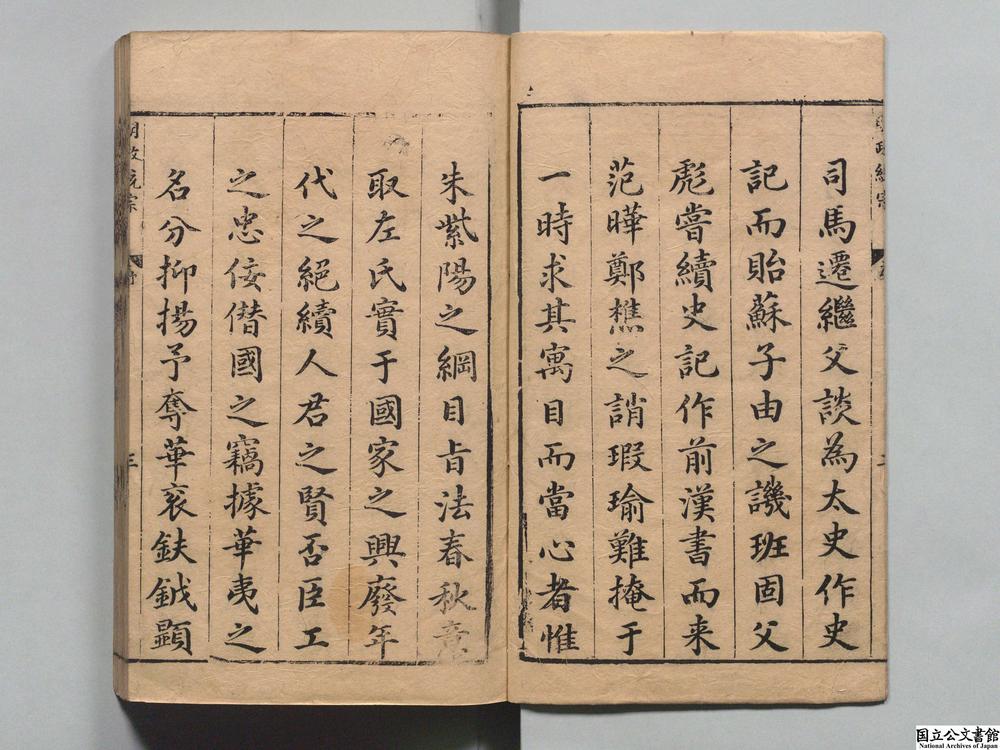 司馬遷繼父談為太史作史
記而貽蘇子由之譏班固父
彪嘗續史記作前漢書而来
范曄鄭樵之誚瑕瑜難掩于
一時求其寓目而當心者惟
朱紫陽之綱目旨法春秋意
取左氏實于國家之興廢年
代之絕續人君之賢否臣工
之忠佞僭國之竊據華夷之
名分抑揚予奪華衮鈇鉞顯
三
国立公文書館
National Archives of Japan